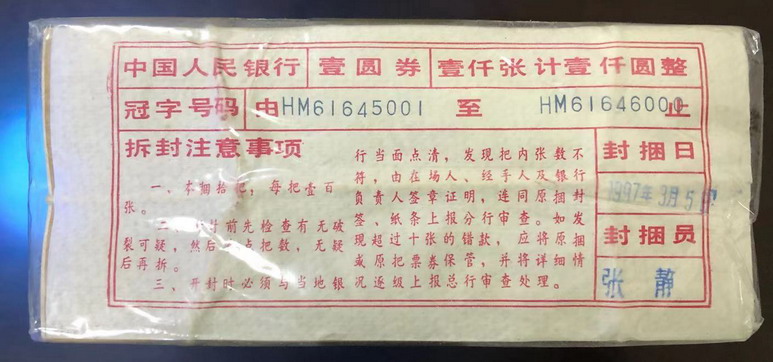 中国人民银行 壹圆券 壹仟张计壹仟圆整
冠字号码 由HM61645001 至 HM61646000止
拆封注意事项
一、本捆拾把，每把壹百
张。
二、 封前先检查有无破
裂可疑，然后 点把数，无疑
后再拆。
三、开封时必须与当地银
行当面点清，发现把内张数不
符，由在场人、经手人及银行
负责人签章证明，连同原捆封
签、纸条上报分行审查。如发
现超过十张的错款，应将原捆
或原把票券保管，并将详细情
况逐级上报总行审查处理。
封捆日
1997年3月5日
封捆员
张静